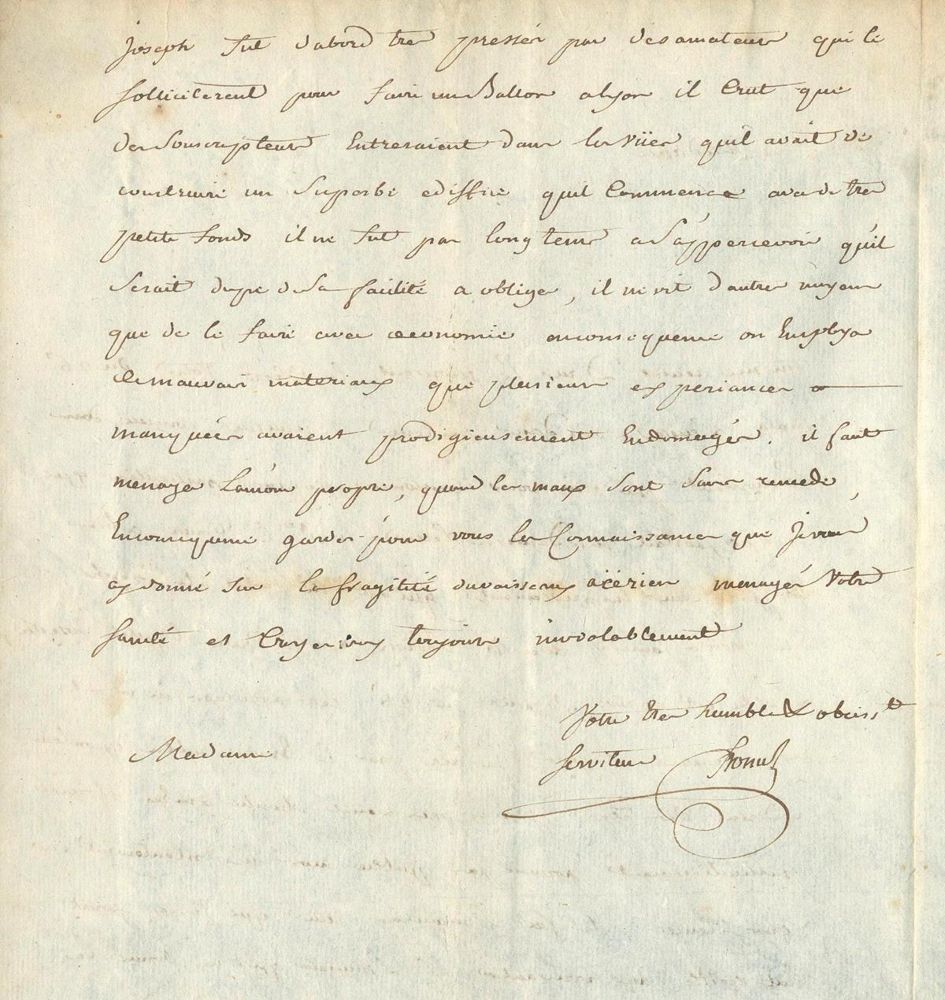 Joseph fut dabord tres pressér par des amateurs qui le
solliciterent pour faire un Ballon a lyon il Crut que
des Souscripteurs Entreraient dans les vües quil avait de
construire un Superbe ediffice quil Commença avec de tres
petits fonds il ne fut pas longtems a S'appercevoir qu'il
Serait dupe de Sa facilité a obliger, il ne vit d'autre moyens
que de le faire avec œconomie enconsequence on Employa
de mauvais materiaux que plusieurs experiances
manquées avaient prodigieusement Endomagés. il faut
menager L'amour propre, quand les maux sont sans remede,
Enconsequence gardes pour vous les Connaissances que Je vous
ay donné sur la fragilité du vaisseaux aëérien menagés Votre
santé et Croyes moy toujours inviolablement
Votre tres humble & obeiss.t
Madame serviteur